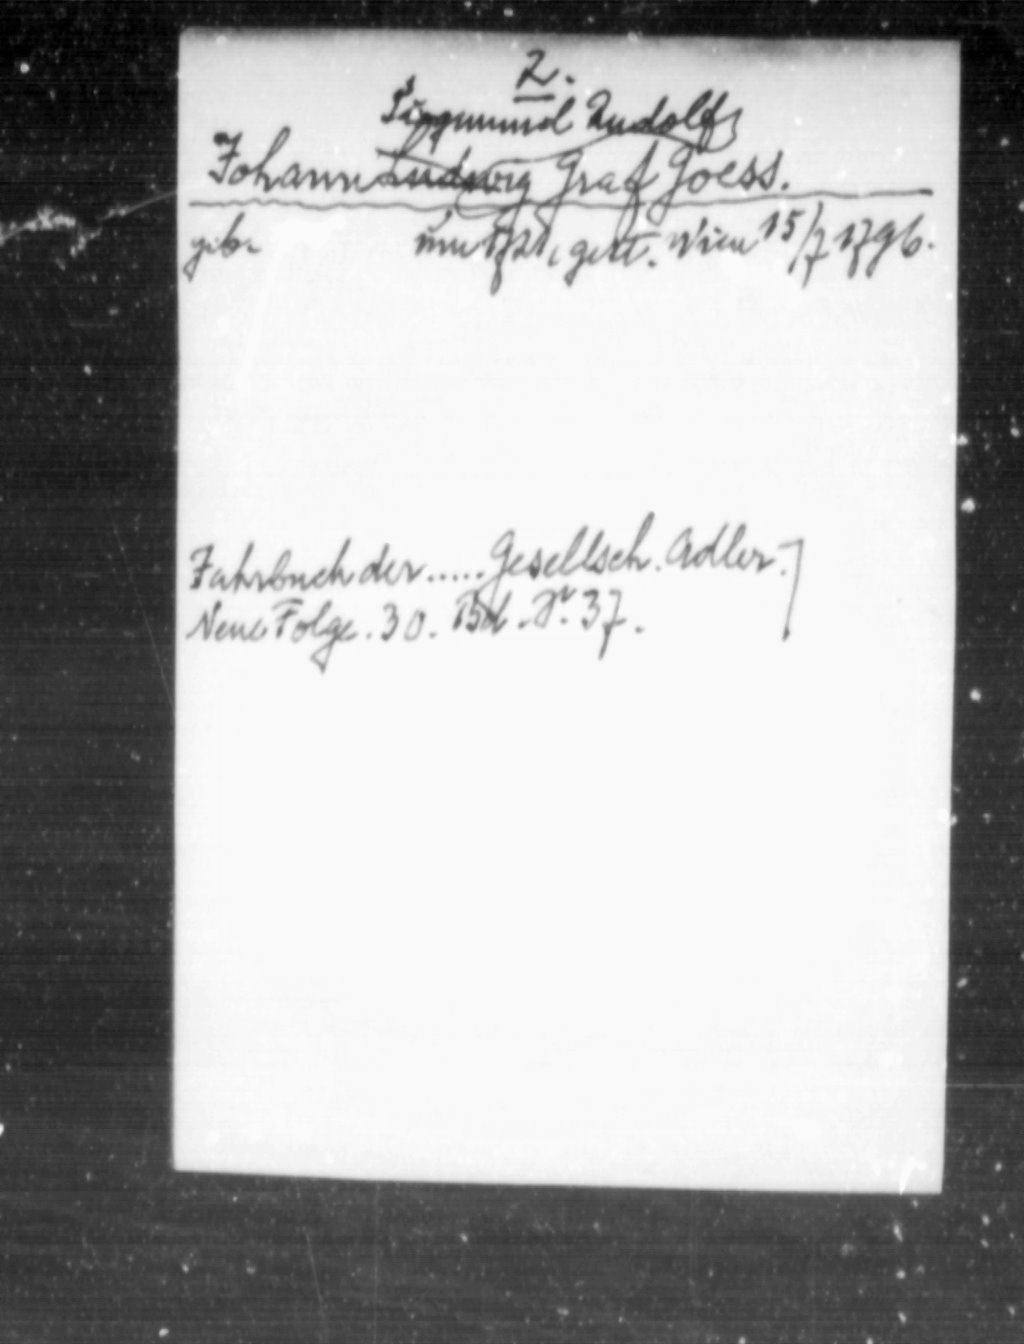 2.
Siegmund Rudolf
Johann Ludwig Graf Goess.
geb. um 1721, gest. Wien 15/7 1796.
Jahrbuch der ..... Gesellsch. Adler.]
Neue Folge. 30. Bd. Nr. 37.